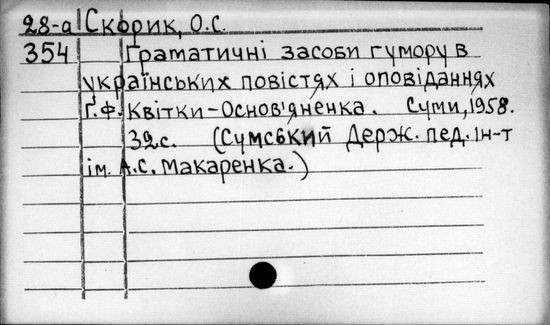 28-а Скорик, О.С.
354 Граматичні засоби гумору в
українських повістях і оповіданнях
Ґ.Ф. Квітки-Основ'яненка. Суми, 1958.
32с. (Сумський Держ. пед. ін-т
ім. А.С. Макаренка.)